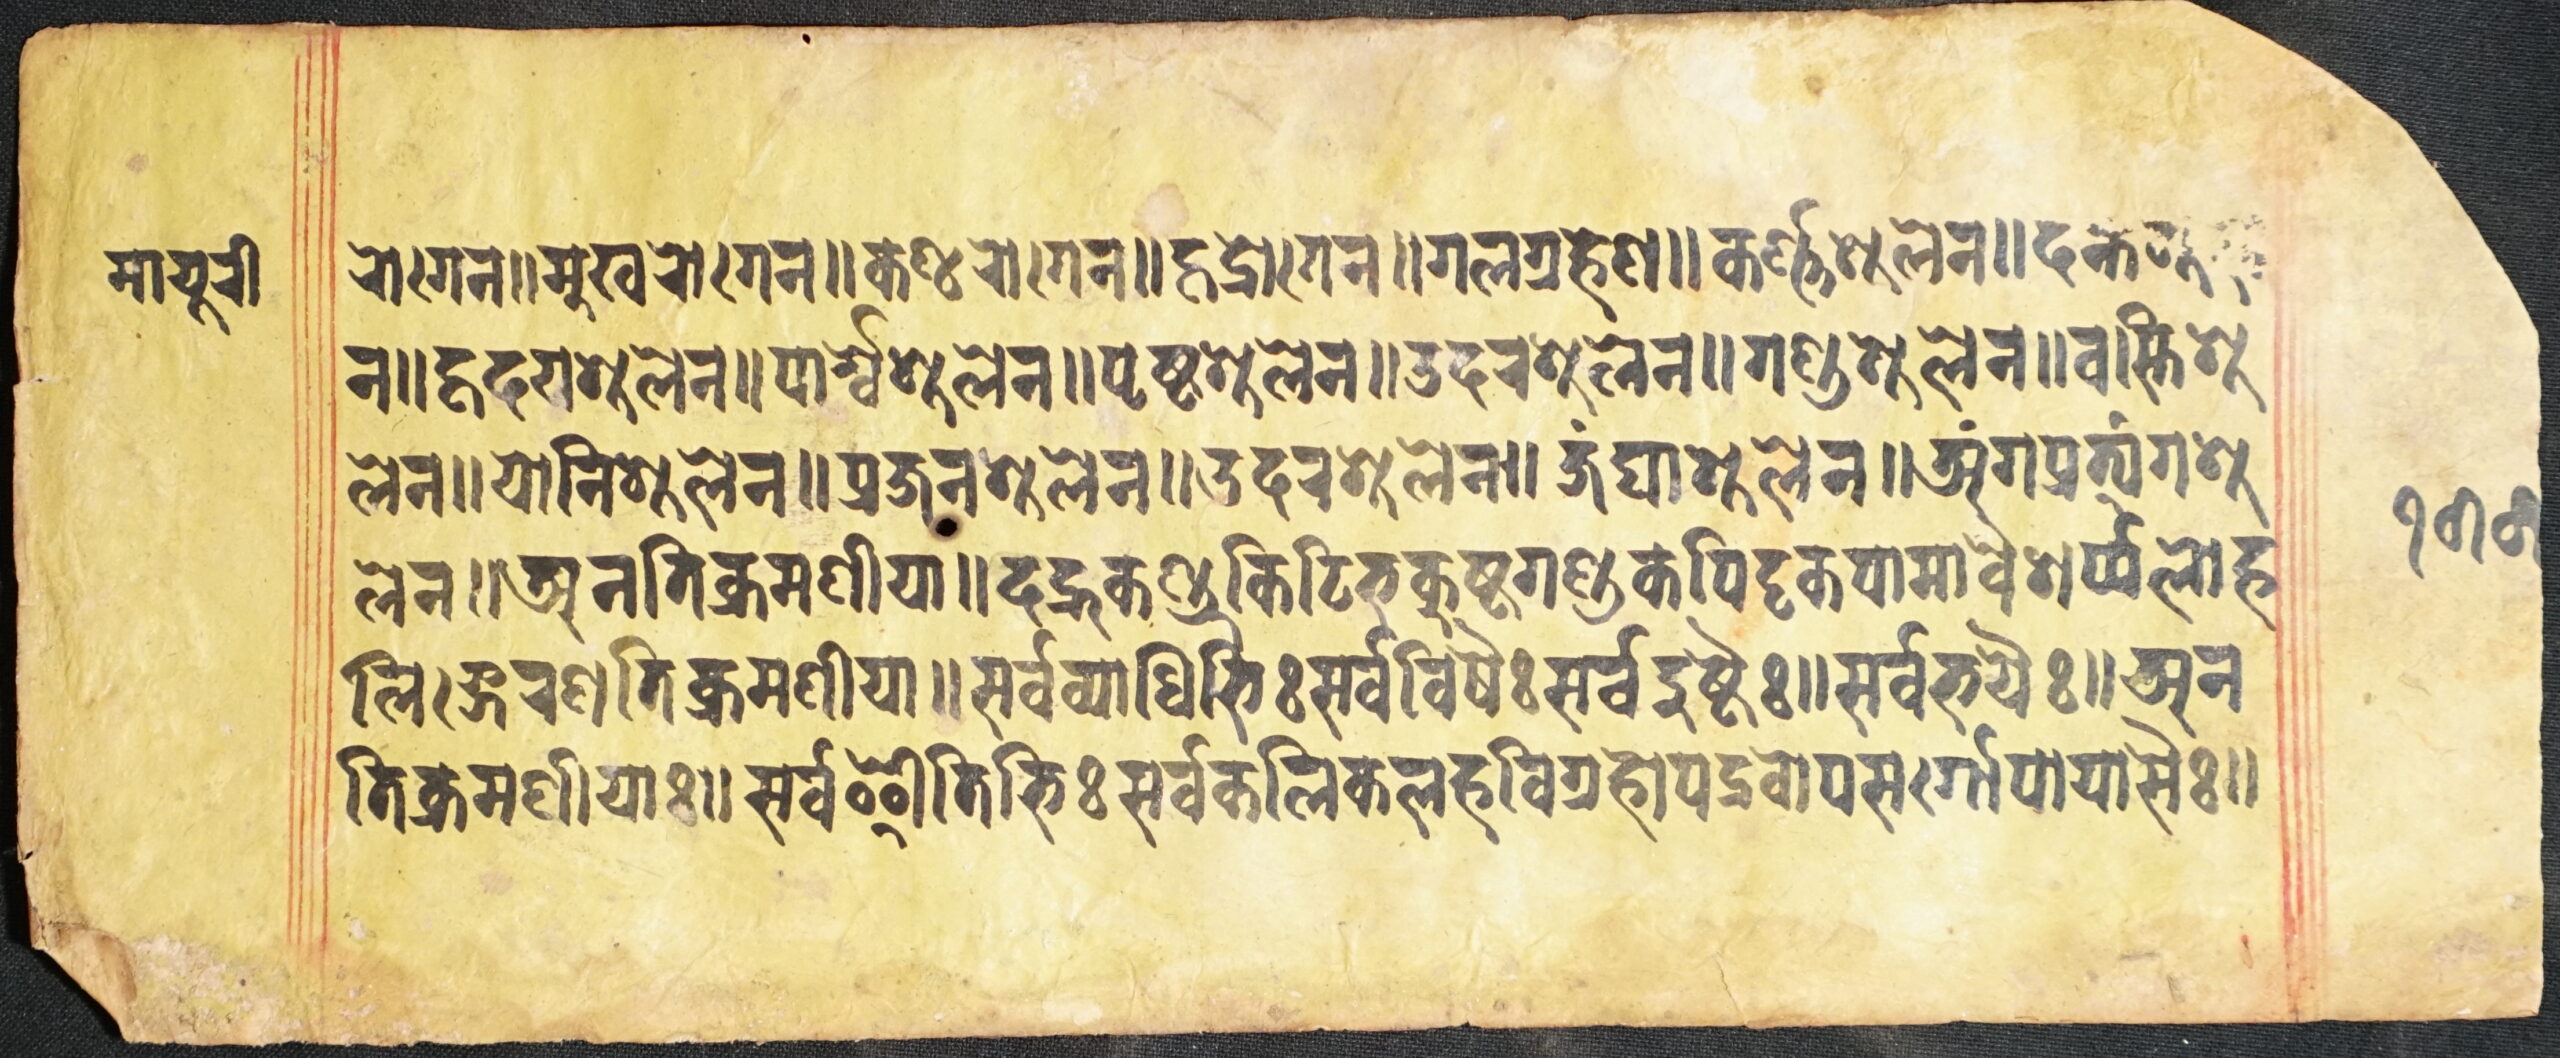 मायूरी
रोगेन॥मुखरोगेन॥कण्ठरोगेन॥हृद्रोगेन॥गलग्रहेण॥कर्ण्णशुलेन॥दन्तशु
न॥हृदयशुलेन॥पार्श्वशुलेन॥पृष्टशुलेन॥उदरशुलेन॥गण्डशुलेन॥वस्तिशु
लेन॥योनिशुलेन॥प्रजनशुलेन॥उदरशुलेन॥जंघाशुलेन॥अंगप्रत्यंगशु
लेन॥अनतिक्रमणीया॥दद्रुकण्डुकिटिभकुष्टगण्डकपिटकपामावैशर्प्पलोह
लिङ्गेरणतिक्रमणीया॥सर्वव्याधिभिः सर्वविषैः सर्वदुष्टैः॥सर्वभयैः॥अन
तिक्रमणीयाः॥सर्व ईतिभिः सर्वकलिकलहविग्रहोपद्रवोपसर्गोपायासैः॥